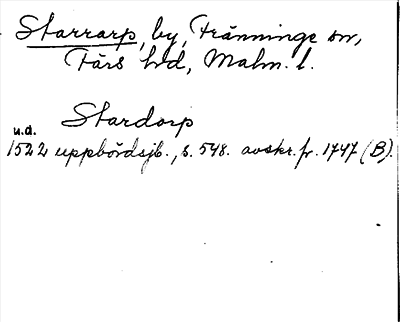 Starrarp, by, Tränninge sn,
Färs hd, Malm. l.
Stardorp
u.d.
1522 uppbördsjb., s. 548. avskr. fr. 1747 (B).